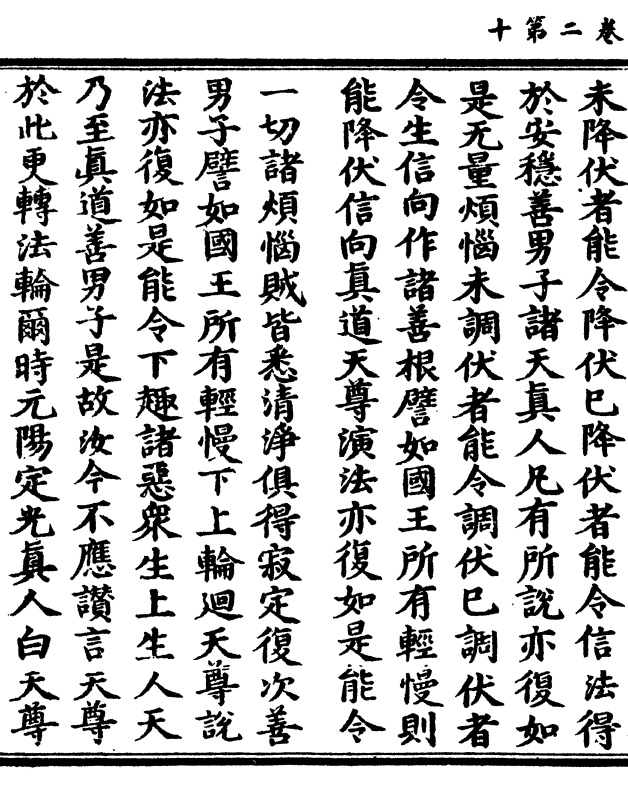 卷二第十
未降伏者能令降伏已降伏者能令信法得
於安穩善男子諸天真人凡有所説亦復如
是无量煩惱未調伏者能令調伏已調伏者
令生信向作諸善根譬如國王所有輕慢則
能降伏信向真道天尊演法亦復如是能令
一切諸煩惱賊皆悉清淨俱得寂定復次善
男子譬如國王所有輕慢下上輪迴天尊説
法亦復如是能令下趣諸惡衆生上生人天
乃至真道善男子是故汝今不應讚言天尊
於此更轉法輪爾時元陽定光真人白天尊